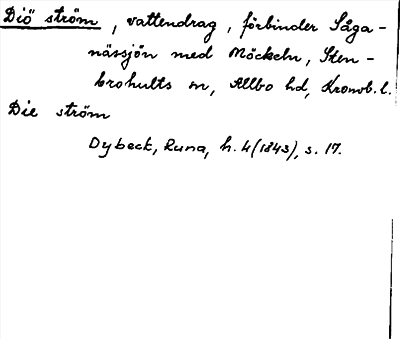 Diö ström, vattendrag, förbinder Såga-
nässjön med Möckeln, Sten-
brohults sn, Allbo hd, Kronob. l.
Die ström
Dybeck, Runa, h. 4 (1843), s. 17.